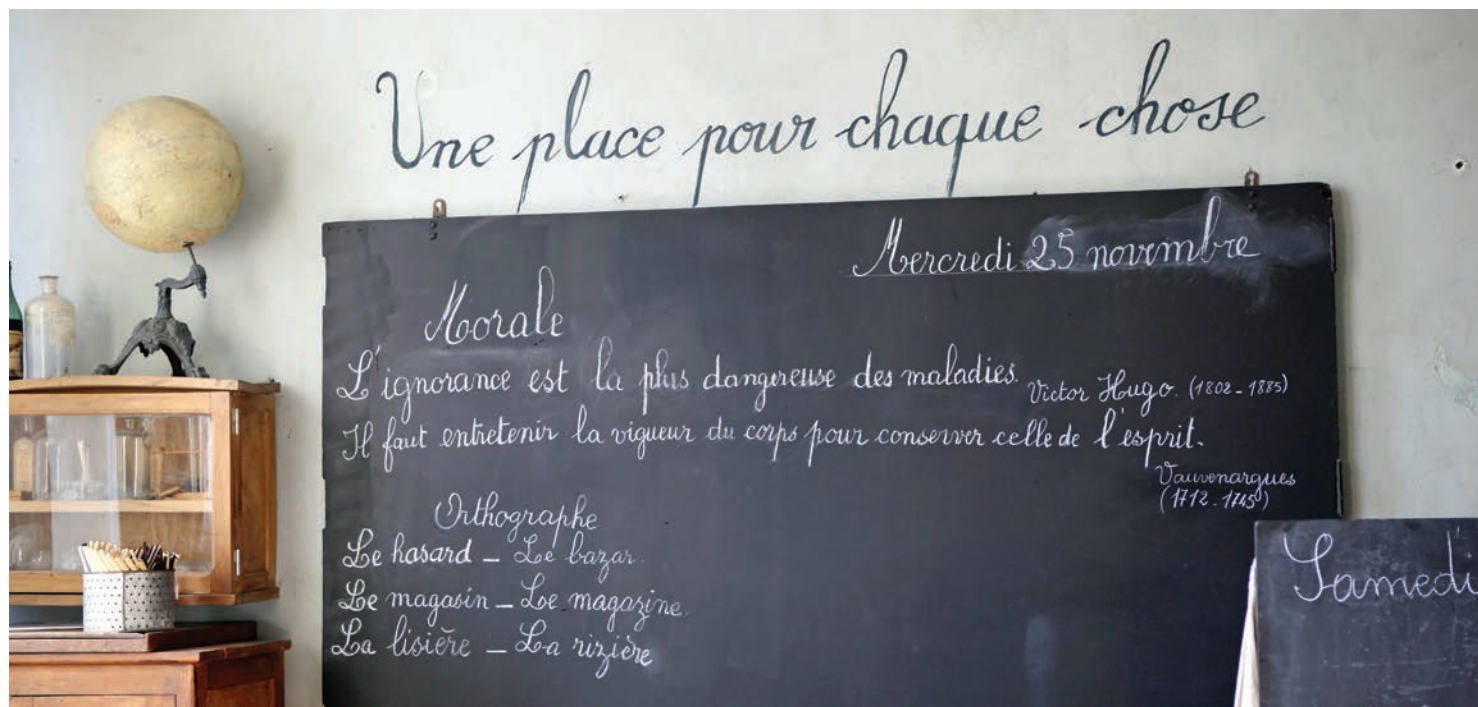 Une place pour chaque chose
Mercredi 25 novembre
Morale
L'ignorance est la plus dangereuse des maladies.
Victor Hugo. (1802-1885)
Il faut entretenir la vigueur du corps pour conserver celle de l'esprit.
Vauvenargues
(1712-1745)
Orthographe
Le hasard – Le bazar.
Le magasin – Le magazine.
La lisière – La rizière
Samedi